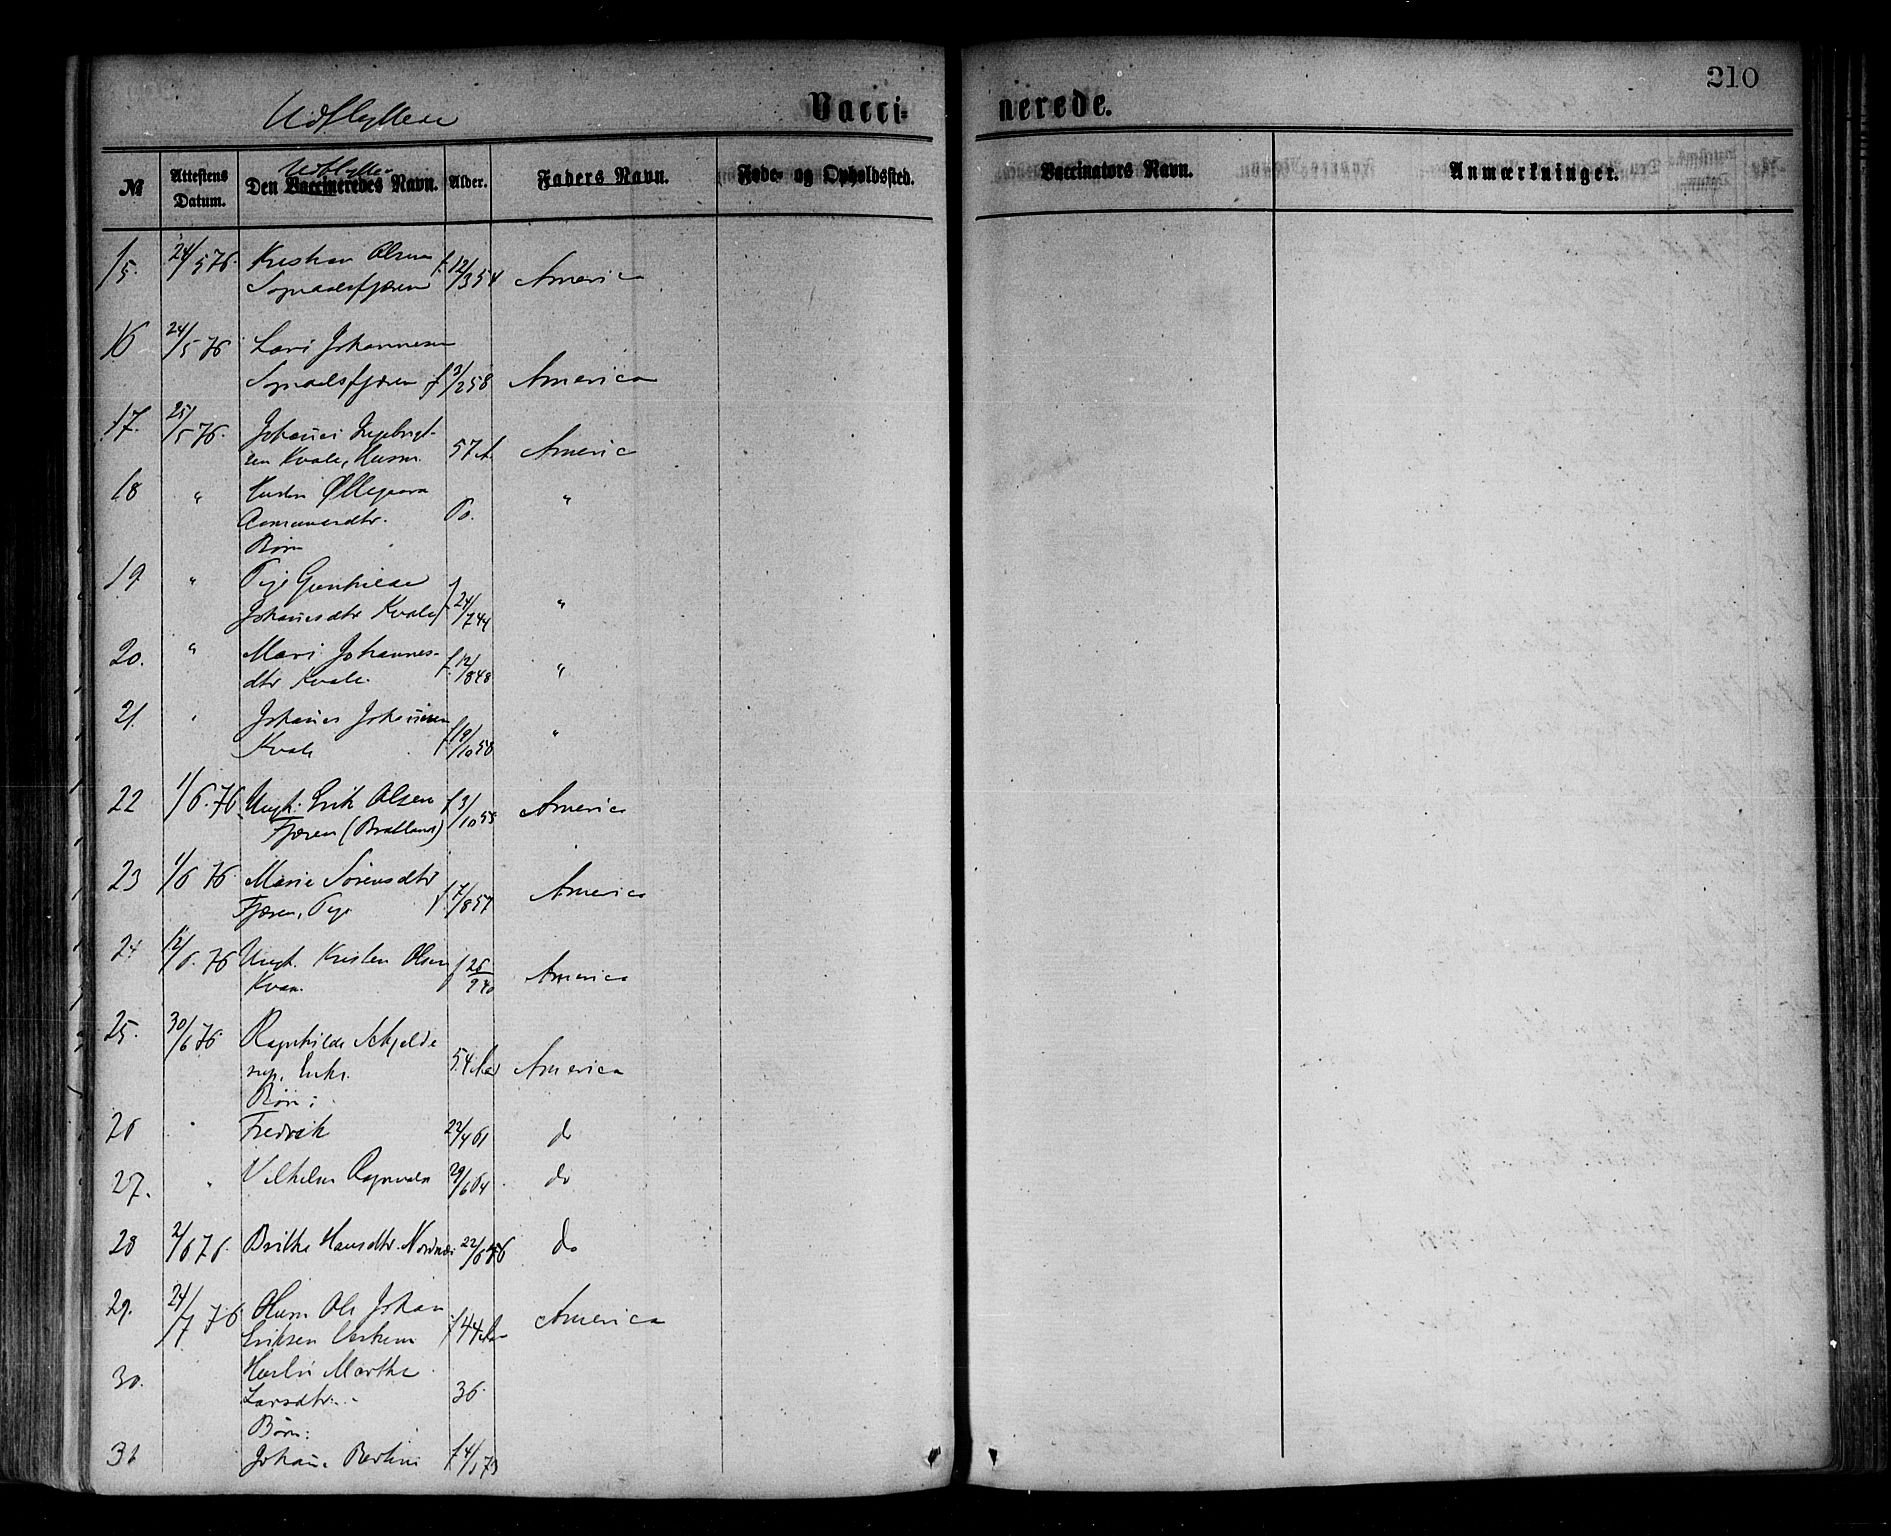 210
Udflyttede
Vacci- nerede.
Udflytte
№ Attestens Datum. Den Vaccineredes Navn. Alder. Faders Navn. Føde- og Opholdssted. Vaccinators Navn. Anmærkninger.
15. 24/5 76. Kristian Olsen
Sogndalsfjæren f. 12/3 54 America
16 24/5 76 Lars Johannesen
Sogndalsfjæren f 3/2 58 America
17. 25/5 76. Johannes Ingebrigt-
sen Kvale, Husm. 57 A. America
18 " Hustru Øllegaard
dtr. "
Børn
19 " Pige Gunhilde
Johannesdtr Kvale f. 24/7 44 "
20. " Mari Johannes-
dtr Kvale. f. 12/8 48 "
21. " Johannes Johannesen
Kvale f. 19/10 58 "
22 1/6. 76 Ungk. Erik Olsen
Fjæren (Bratland) f 3/10 55 America
23 1/6 76. Marie Sørensdtr
Fjæren, Pige f. 7/8 57 America
24 12/6. 76 Ungk. Kristen Olsen
Kvam. f 26/9 40 America
25. 30/6 76. Ragnhilde Schjelde-
rup, Enke. 54 Aar America
Børn:
26 " Fredrik 22/4 61 do
27. " Vilhelm Ragnvald 29/6 64 do
28 2/6 76. Brithe Hansdtr. Nordnæs 22/6 56 do
29. 24/7 76 Husm Ole Johan
Eriksen f 44 Aar America
30. Hustru Marthe
Larsdtr. 36.
Børn:
31 Johan Bertin f. 4/1 73